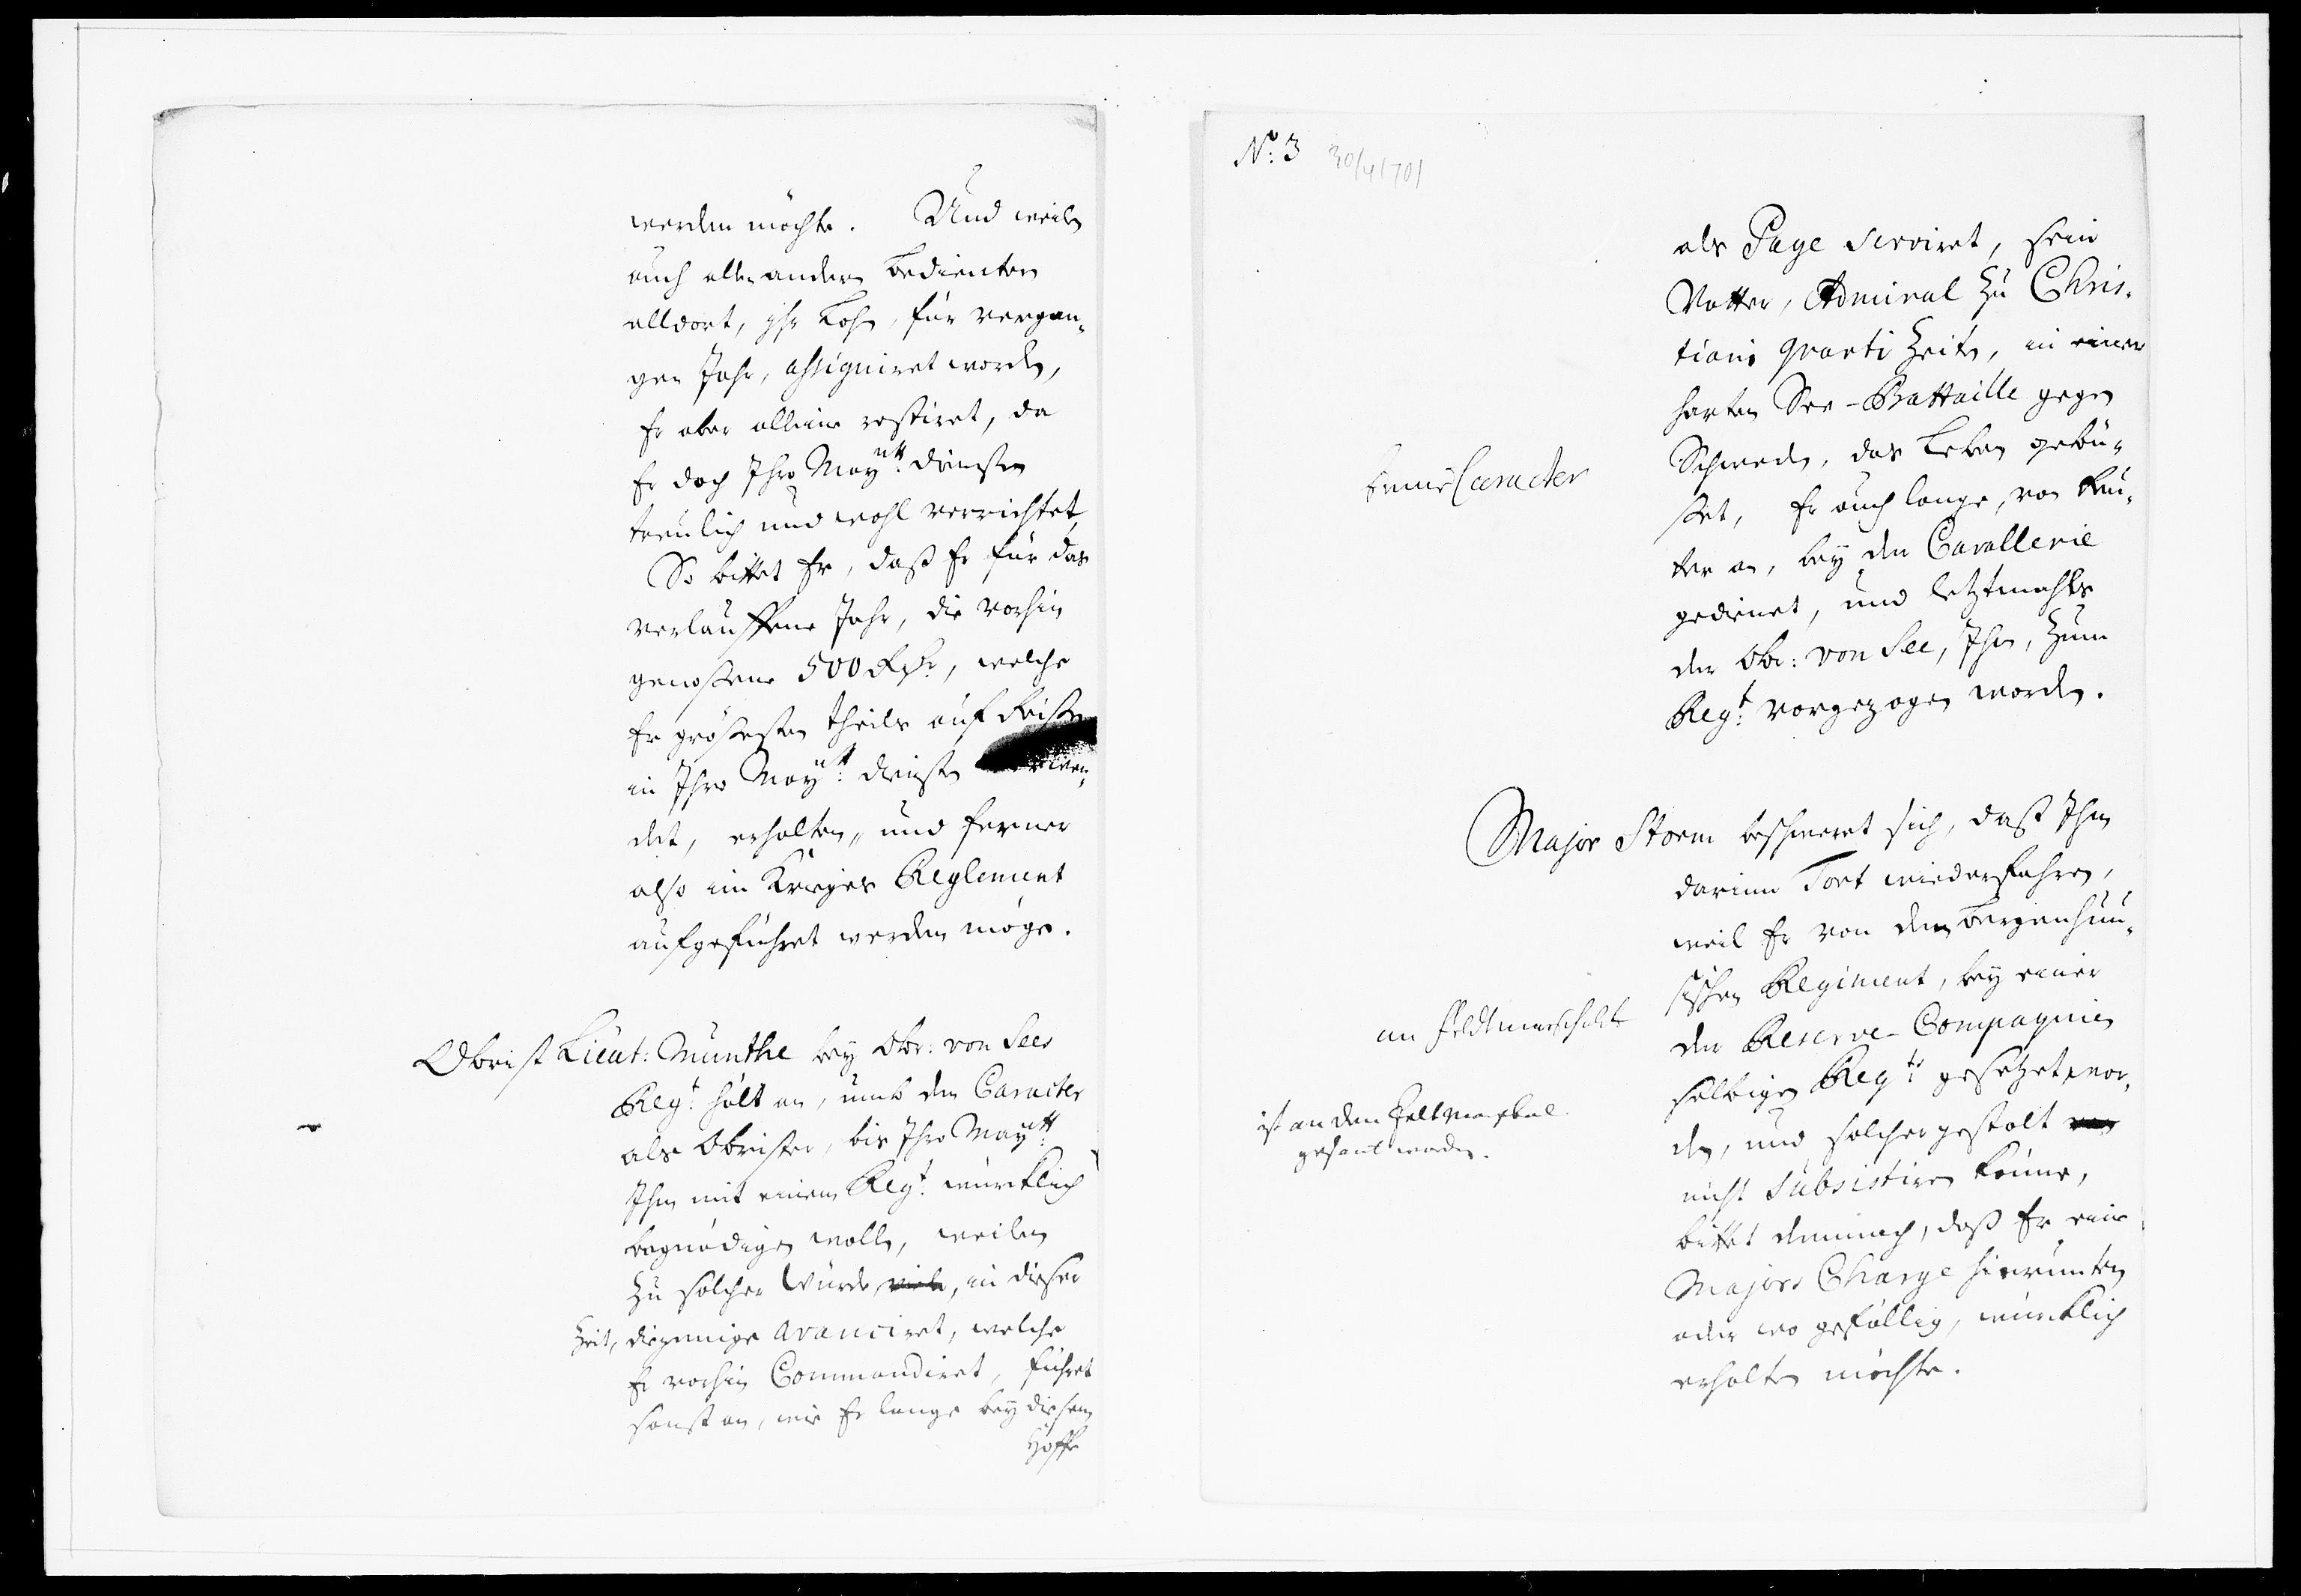 werden möchte. Und weiln
auch allen andern Bedienten
alldort, ihr Lohn, für vergan¬
gen Jahr, assigniret worden,
Er aber alleine restiret, da
Er doch Ihro Maytt: diensten
treulich und wohl verrichtet,
So bittet Er, daß Er für das
verlauffene Jahr, die vorhin
genoßene 500 Rdr:, welche
Er größesten theils auf Reisen
in Ihro Maytt: dienste
det, erhalten, und ferner
also im Krieges Reglement
aufgeführet werden möge.
Obrist Lieut: Munthe bey Obr: von Sees
Regt: hält an, umb den Caracter
als Obrister, bis Ihro Maytt:
Ihm mit einem Regt: würcklich
begnädigen wolle, weilen
zu solcher Würde, in dieser
Zeit, diejenige avanciret, welche
Er vorhin Commandiret, führet
sonst an, wie Er lange bey diesem
Hoffe
No: 3 30/4 1701
als Page serviret, sein
Vatter, Admiral zu Chris¬
tiani quarti Zeiten, in einer
harten See-Battaille gegen
Schweden, das Leben gebü¬
ßet, Er auch lange, von Reu¬
ter an, bey der Cavallerie
gedienet, und letztmahls
der Obr: von See, Ihm, zum
Regt: vorgezogen worden.
Caracter
Major Storm beschweret sich, daß Ihm
darinn Tort wiederfahren,
weil Er von dem Bergenhuu¬
sischen Regiment, bey einer
der Reserve-Compagnien
selbigen Regts: gesetzet wor¬
den, und solchergestalt
nicht subsistiren könne,
bittet demnach, daß Er eine
Majors Charge hierunten
oder wo gefällig, würcklich
erhalten möchte.
an Feldtmarschalk
ist an dem Feltmarschal
gesant worden.